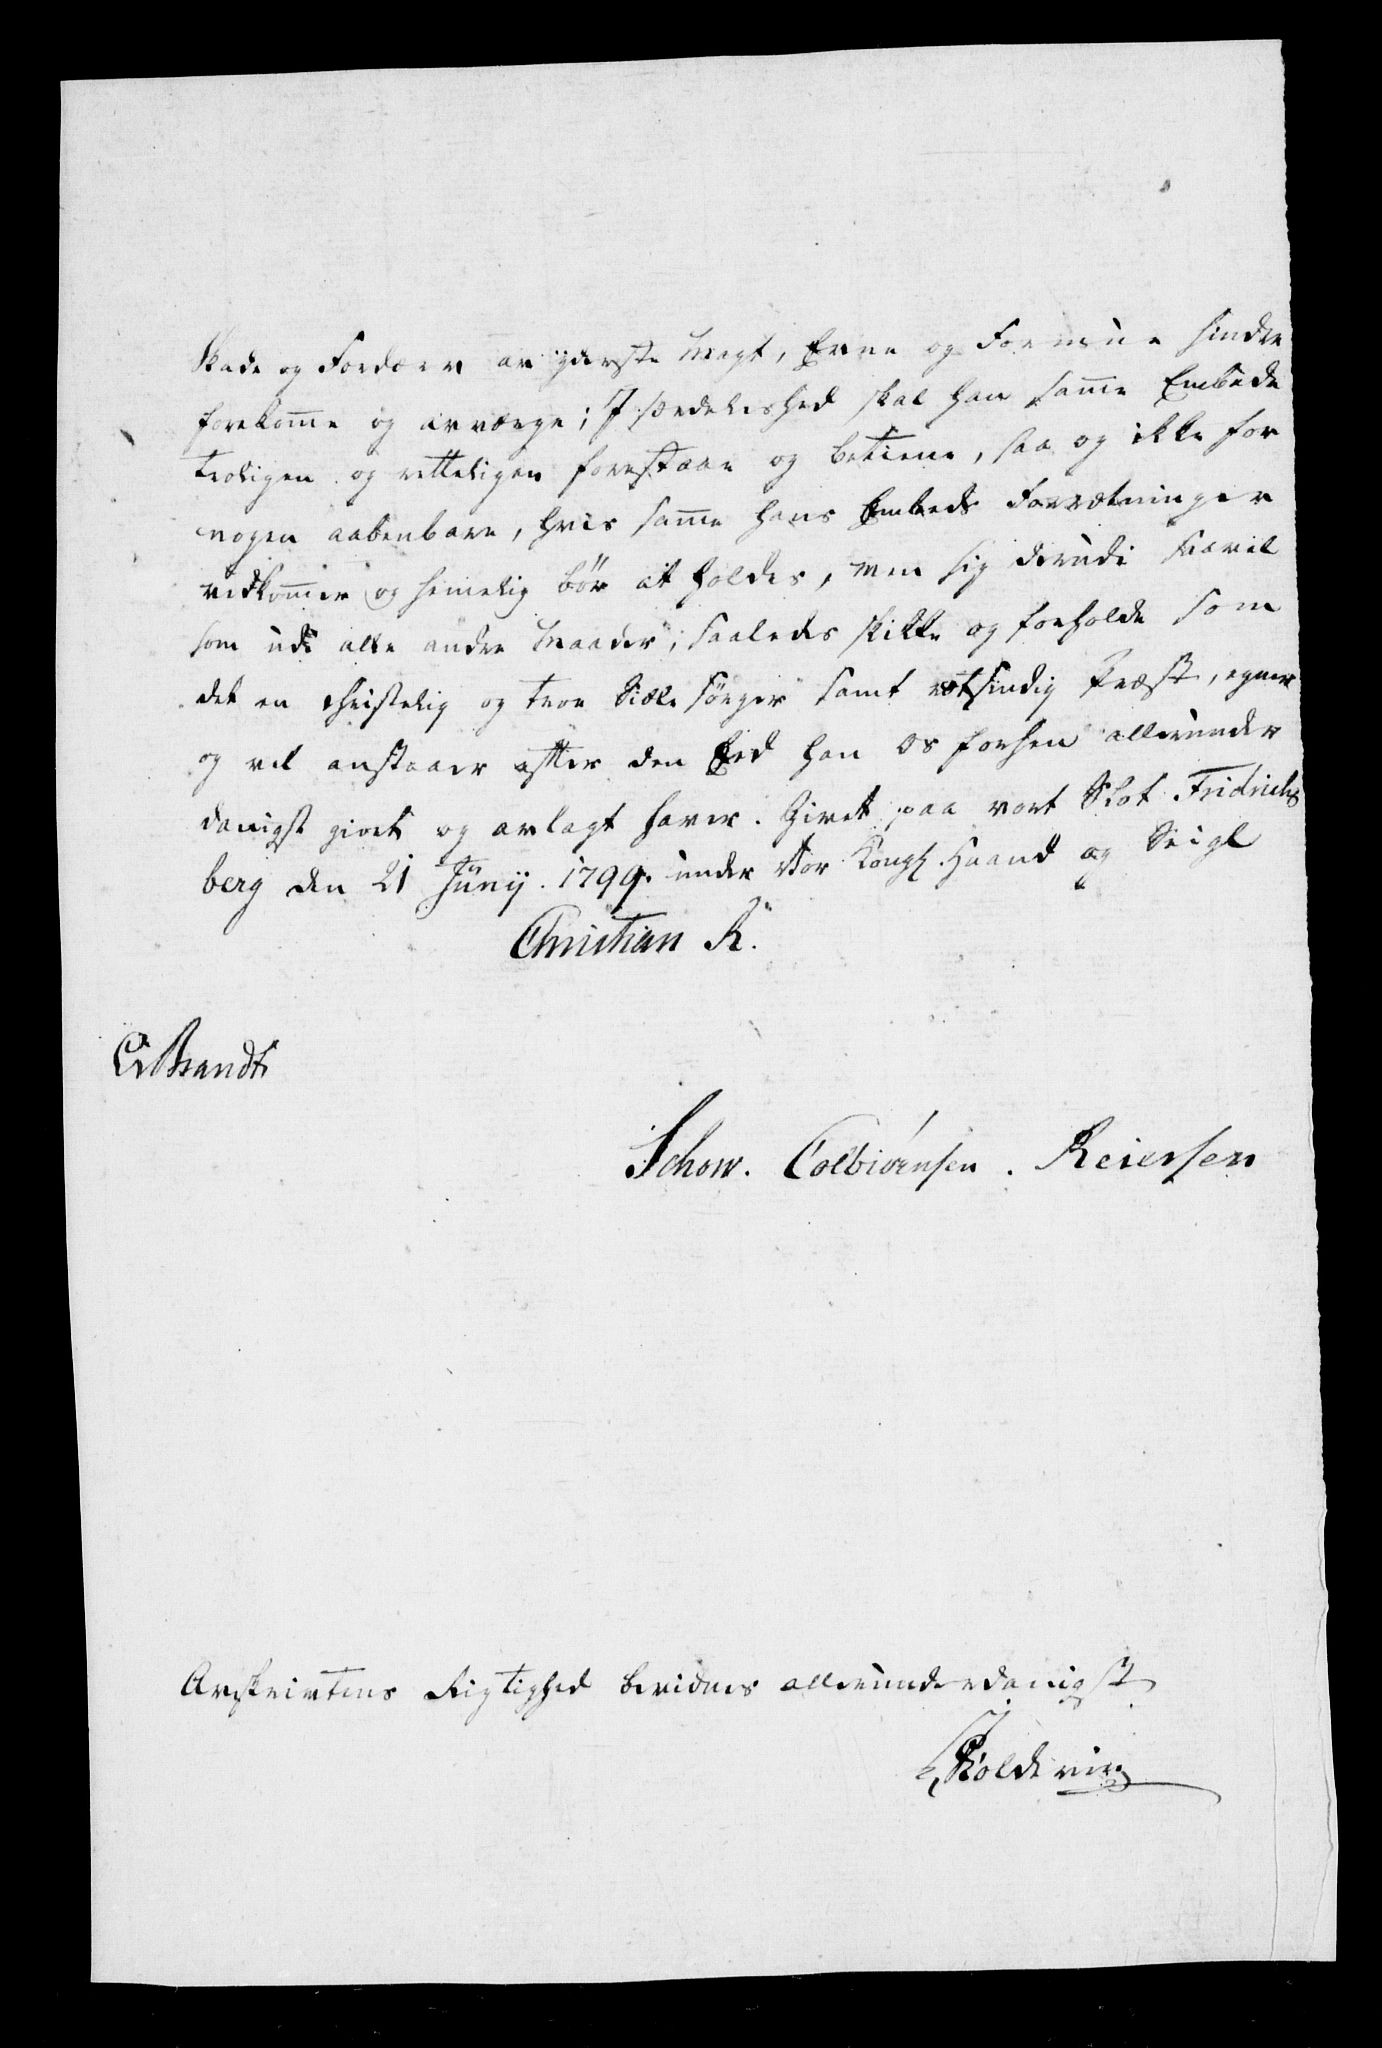 Skade og Fordærv av yderste Magt, Evne og Formue hindre
forekom̅e og avværge; J særdeleshed skal han sam̅e Embede
troligen og retteligen forestaae og betiene, saa og ikke for
nogen aabenbare, hvis sam̅e hans Embeds Forrætninger
vedkom̅er og hemelig bør at holdes, men sig derudi saavel
som udi alle andre Maader, saaledes skikke og forholde som
det en christelig og troe Siæle sörger samt retsindig Præst, egner
og vel anstaaer efter den Eed han os forhen allerunder
danigst giort og avlagt haver. Givet paa vort Slot Fridrichs
berg den 21 Junij. 1799. under Vor Kongl. Haand og Seigl
Christian R.
Brandt
Schow. Colbiörnsen. Reiersen
Avskrivtens Rigtighed bevidnes allerunderdanigst